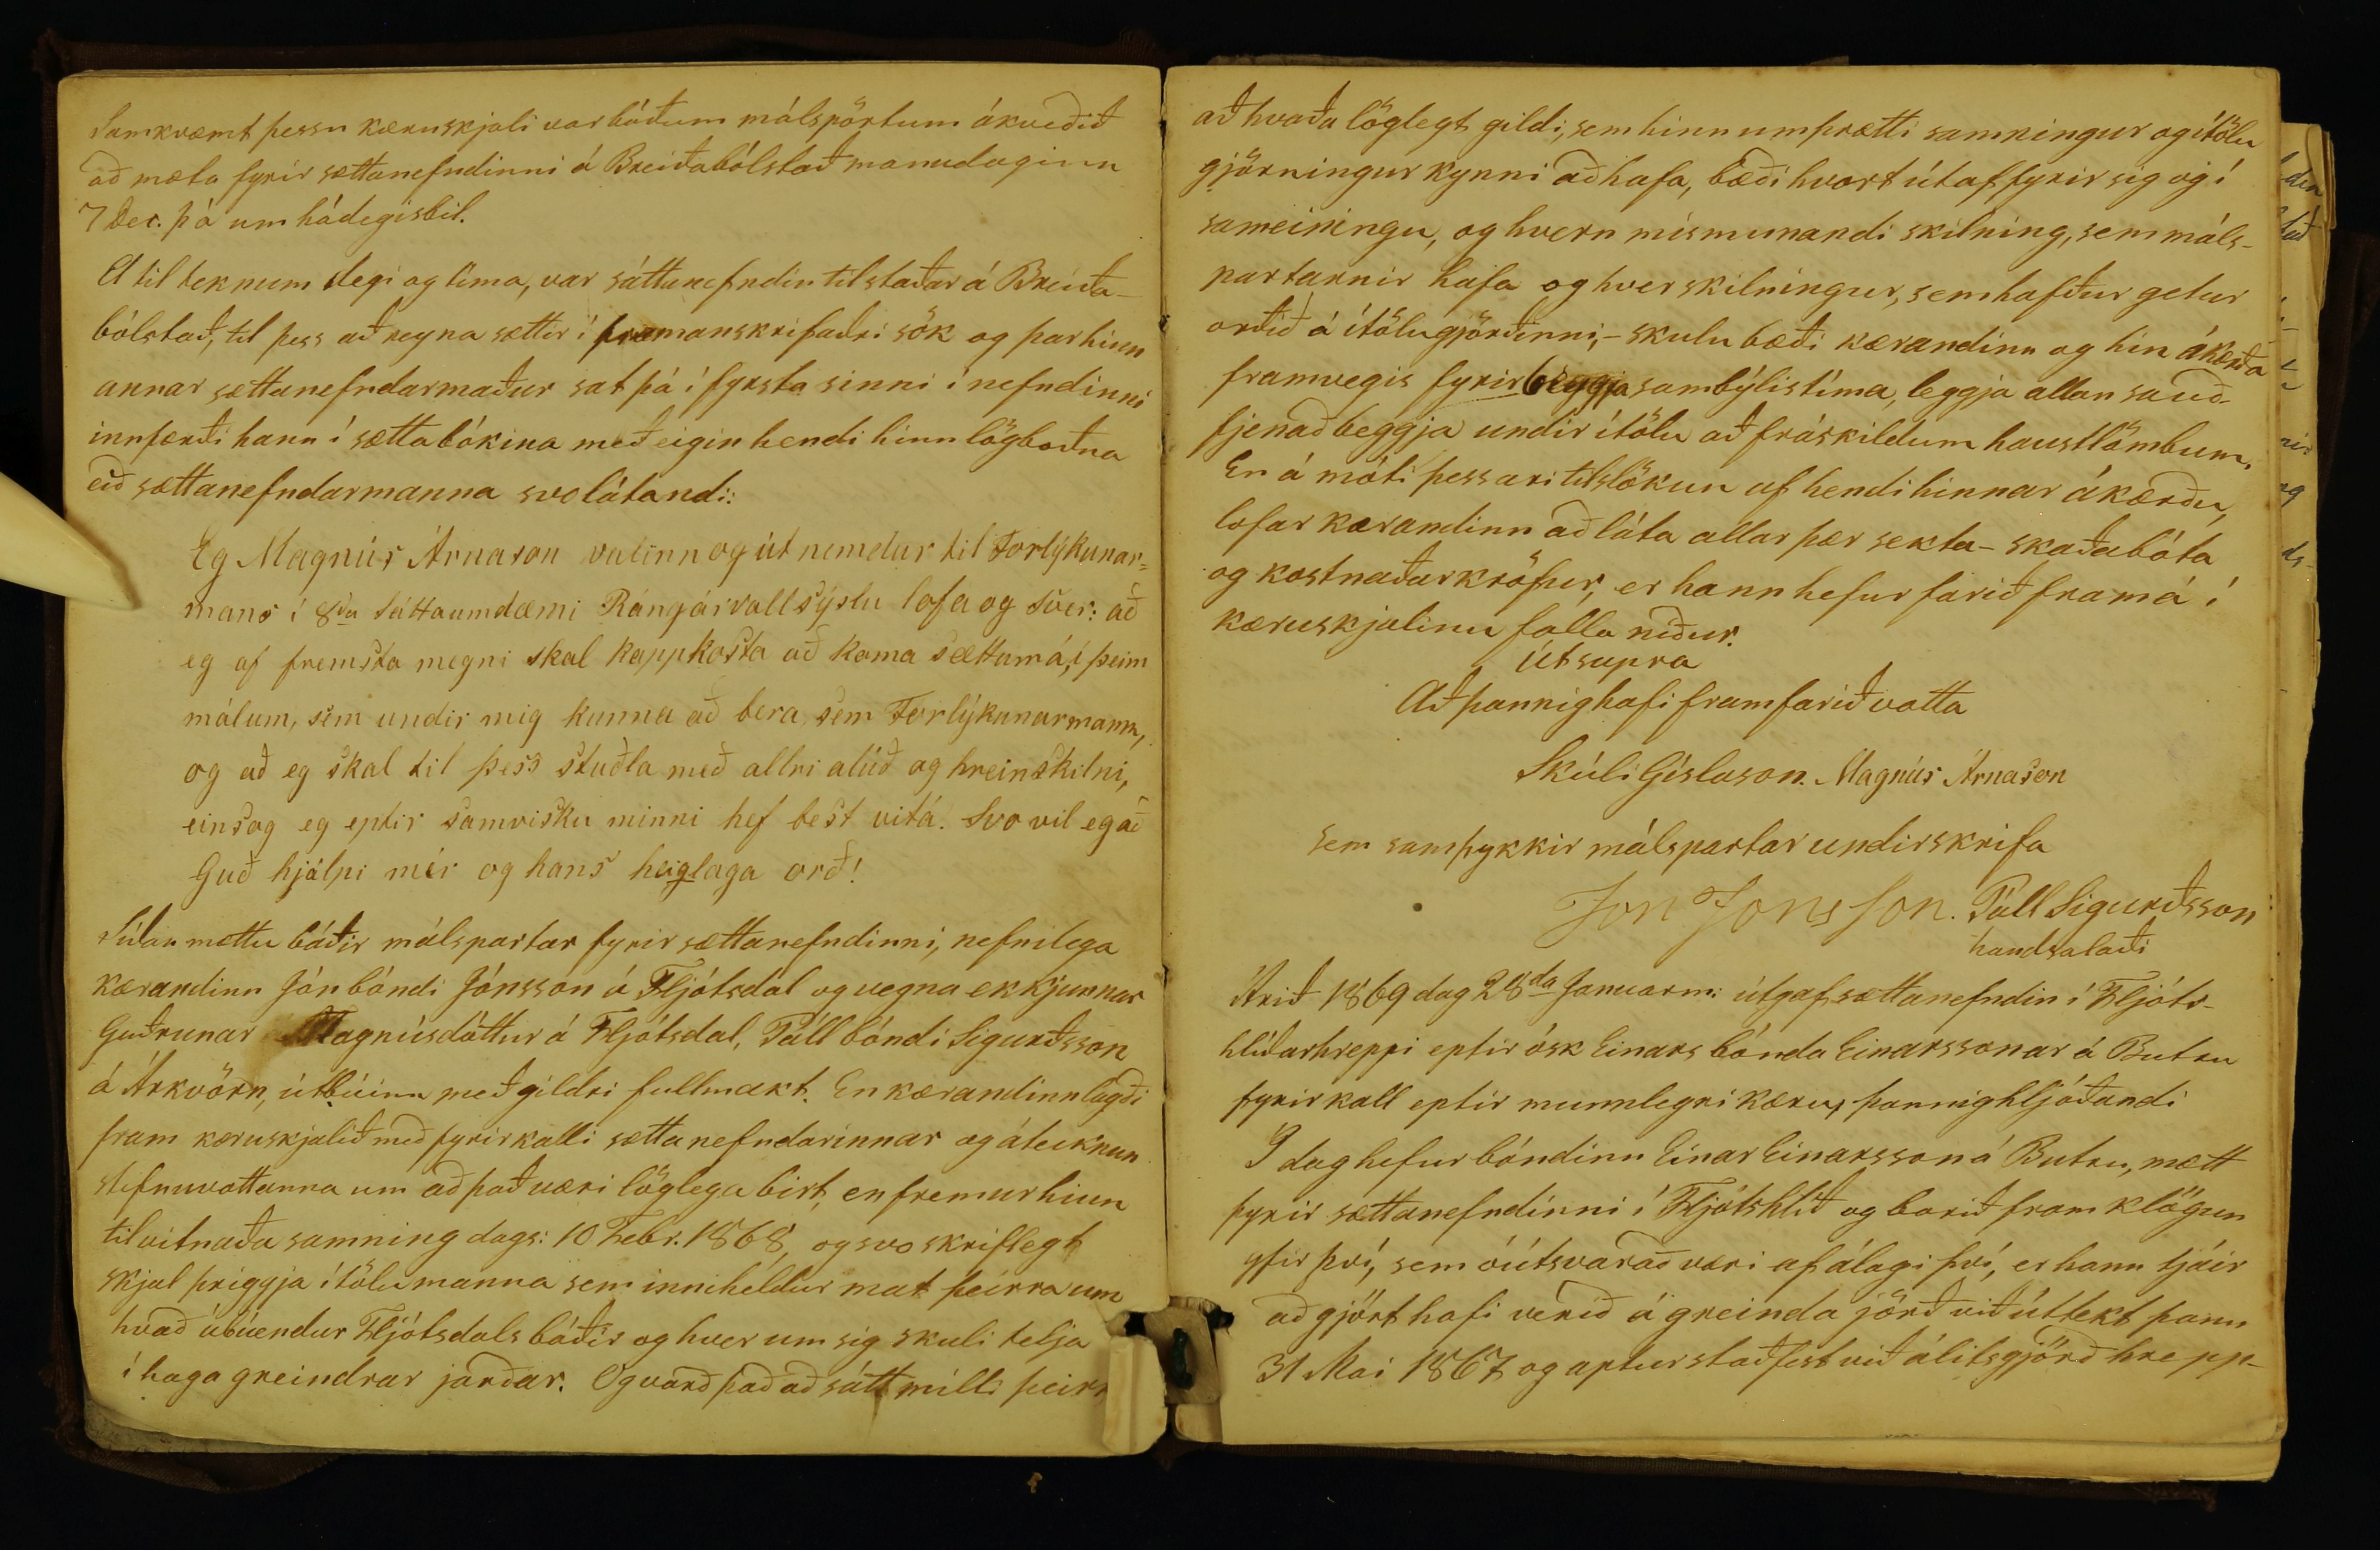 Samkvæmt þessu kæruskjali var báðum málspörtum ákveðið
að mæta fyrir sættanefndinni á Breiðabólstað manudaginn
7 Dec. þá um hádegisbil.
A til teknum degi og tíma, var sáttanefndin til staðar á Breiða-
bólstað, til þess að reyna sættir í framanskrifaðri sök og þar hinn
annar sættanefndarmaður sat þá í fyrsta sinni í nefndinni
innfærði hann í sættabókina með eigin hendi hinn lögboðna
eið sættanefndarmanna svolátandi:
Eg Magnús Árnason valinn og út nemdur til Forlýkunar=
mans í 8da Sáttaumdæmi Rángárvallsýslu lofa og sver: að
eg af fremsta megni skal kappkosta að koma sættum á, í þeim
málum, sem undir mig kunna að bera, sem Forlýkunarmann,
og að eg skal til þess stuðla með allri alúð og hreinskilni,
einsog eg eptir samvisku minni hef best vitá. Svo vil eg að
Guð hjálpi mér og hans heiglaga orð!
Síðan mættu báðir málspartar fyrir sættanefndinni, nefnilega
kærandinn Jón bóndi Jónsson á Fljótsdal og vegna ekkjunnar
Guðrunar Magnúsdóttur á Fljótsdal, Páll bóndi Sigurðsson
á Árkvörn, útbúinn með gildri fullmakt. En kærandinn lagði
fram kæruskjalið með fyrirkalli sættanefndarinnar og áteiknun
stefnuvottanna um að það væri löglega birt, en fremur hinn
tilvitnaða samning dags: 10 Febr. 1868, og svo skriflegt
skjal þriggja ítölumanna sem inniheldur mat þeirra um
hvað ábúendur Fljótsdals báðir og hver um sig skuli telja
í haga greindrar jarðar. Og varð það að sátt milli þeirr
að hvaða löglegt gildi, sem hinn umþrætti samningur og ítölu
gjörningur kynni að hafa, bæði hvort út af fyrir sig og í
sameiningu, og hvern mismunandi skilning, sem máls-
partarnir hafa og hver skilningur, sem hafður getur
orðið á ítölugjörðinni, - skulu bæði kærandinn og hin ákærða
framvegis fyrir beggja sambýlistíma, leggja allan sauð-
fjenað beggja undir ítölu að fráskildum haustlömbum.
En á móti þessari tilslökun af hendi hinnar ákærðu,
lofar kærandinn að láta allar þær sekta- skaðabóta
og kostnaðarkröfur, er hann hefur farið fram á í
kæruskjalinu falla niður.
Út supra
Að þannig hafi framfarið votta
Skúli Gíslason. Magnús Árnason
Sem samþykkir málspartar undirskrifa
Jon Jonsson. Páll Sigurðsson
handsalaði
Árið 1869 dag 28da Januarm: útgaf sættanefndin í Fljóts-
hlíðarhreppi eptir ósk Einars bónda Einarssonar á Butru
fyrirkall eptir munnlegri kæru, þannig hljóðandi
I dag hefur bóndinn Einar Einarsson á Butru, mætt
fyrir sættanefndinni í Fljótshlíð og borið fram klögun
yfir því, sem óútsvarað væri af álagi því, er hann tjáir
að gjört hafi verið á greinda jörð við úttekt þann
31 Mai 1867 og aptur staðfest við álitsgjörð hrepp-